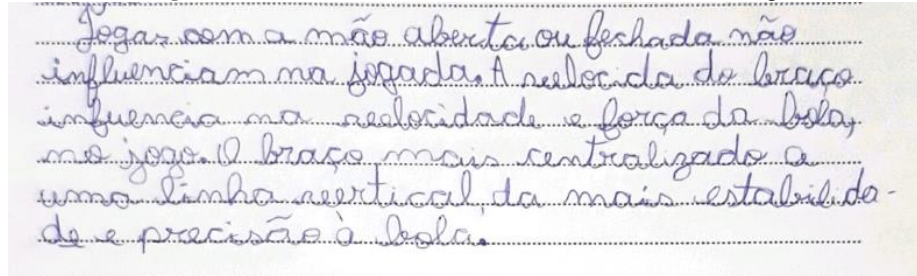 Jogar com a mão aberta ou fechada não
influenciam na jogada. A velocida do braço
infuencia na velocidade e força da bola,
no jogo. O braço mais centralizado a
uma linha vertical, da mais estabilida-
de e precisão à bola.